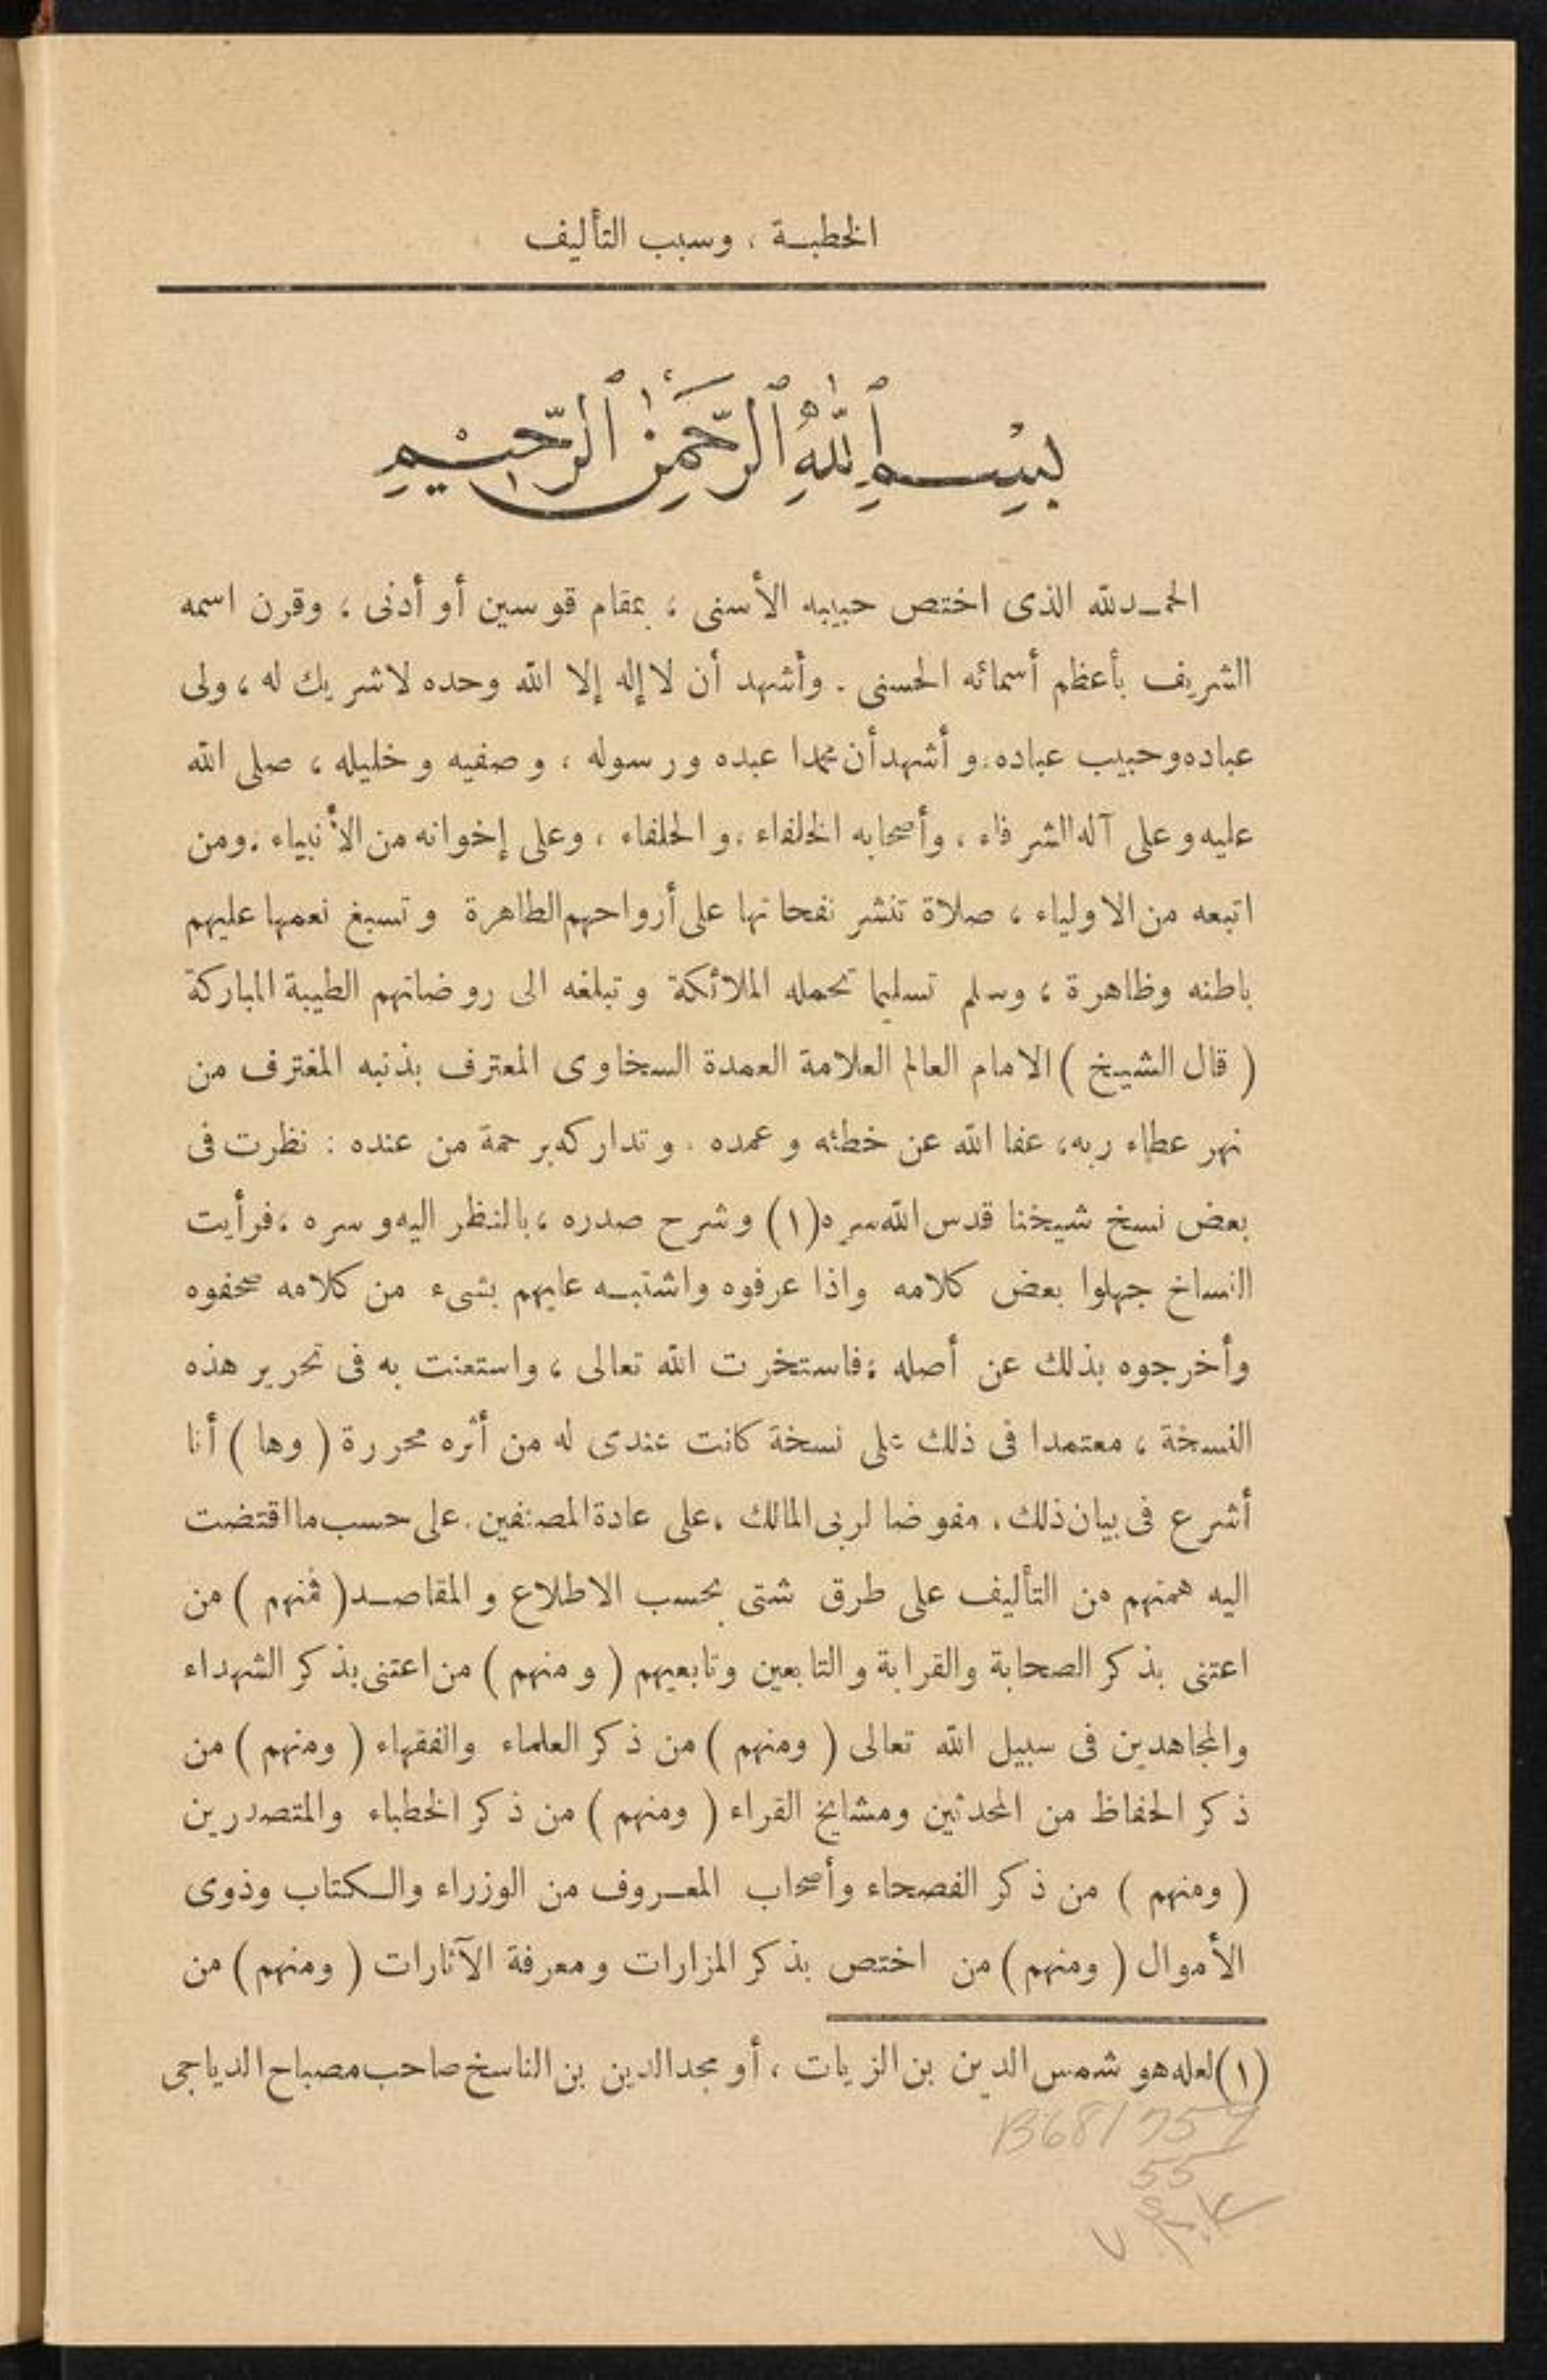 الخطبة ، وسبب التأليف
بسم الله الرحمن الرحيم
الحمد لله الذى اختص حبيبه الأسنى ؛ بمقام قوسين أو أدنى ؛ وقرن اسمه
الشريف بأعظم أسمائه الحسنى . وأشهد أن لا إله إلا الله وحده لا شريك له ، ولى
عباده وحبيب عباده . وأشهد أن محمدا عبده ورسوله ، وصفيه وخليله ، صلى الله
عليه وعلى آله الشرفاء ، وأصحابه الخلفاء ، والحلفاء ، وعلى إخوانه من الأنبياء . ومن
اتبعه من الاولياء ، صلاة تنشر نفحاتها على أرواحهم الطاهرة وتسبغ نعمها عليهم
باطنه وظاهرة ؛ وسلم تسليما تحمله الملائكة وتبلغه الى روضاتهم الطيبة المباركة
( قال الشيخ ) الامام العالم العلامة العمدة السخاوى المعترف بذنبه المغترف من
نهر عطاء ربه ، عفا الله عن خطئه وعمده . وتداركه برحمة من عنده : نظرت فى
بعض نسخ شيخنا قدس الله سره (١) وشرح صدره ، بالنظر اليه وسره ، فرأيت
النساخ جهلوا بعض كلامه واذا عرفوه واشتبه عليهم بشىء من كلامه صحفوه
وأخرجوه بذلك عن أصله ؛ فاستخرت الله تعالى ، واستعنت به فى تحرير هذه
النسخة ، معتمدا فى ذلك على نسخة كانت عندى له من أثره محررة ( وها ) أنا
أشرع فى بيان ذلك ، مفوضا لربى المالك ، على عادة المصنفين . على حسب ما اقتضت
اليه همتهم من التأليف على طرق شتى بحسب الاطلاع والمقاصد ( فمنهم ) من
اعتنى بذكر الصحابة والقرابة والتابعين وتابعيهم ( ومنهم ) من اعتنى بذكر الشهداء
والمجاهدين فى سبيل الله تعالى ( ومنهم ) من ذكر العلماء والفقهاء ( ومنهم ) من
ذكر الحفاظ من المحدثين ومشايخ القراء ( ومنهم ) من ذكر الخطباء والمتصدرين
( ومنهم ) من ذكر الفصحاء وأصحاب المعروف من الوزراء والكتاب وذوى
الأموال ( ومنهم ) من اختص بذكر المزارات ومعرفة الآثارات ( ومنهم ) من
(١) لعله هو شمس الدين بن الزيات ، أو مجد الدين بن الناسخ صاحب مصباح الدياجى
B681757
55